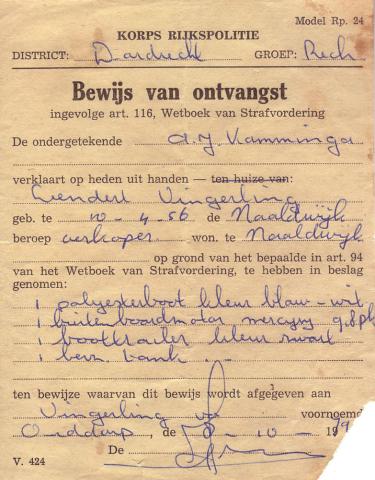 Model Rp. 24
KORPS RIJKSPOLITIE
DISTRICT: Dordrecht GROEP: Rech
Bewijs van ontvangst
ingevolge art. 116, Wetboek van Strafvordering
De ondergetekende A.J. Kamminga
verklaart op heden uit handen — ten huize van:
Leendert Vingerling
geb. te 10-4-56 de Naaldwijk
beroep verkoper won. te Naaldwijk
op grond van het bepaalde in art. 94
van het Wetboek van Strafvordering, te hebben in beslag
genomen:
1 polyesterboot kleur blauw-wit
1 buitenboordmotor mercury 9,8 pk
1 boottrailer kleur zwart
1 benz. tank
ten bewijze waarvan dit bewijs wordt afgegeven aan
Vingerling voornoemd
Ouddorp, de 8-10-19
De
V. 424